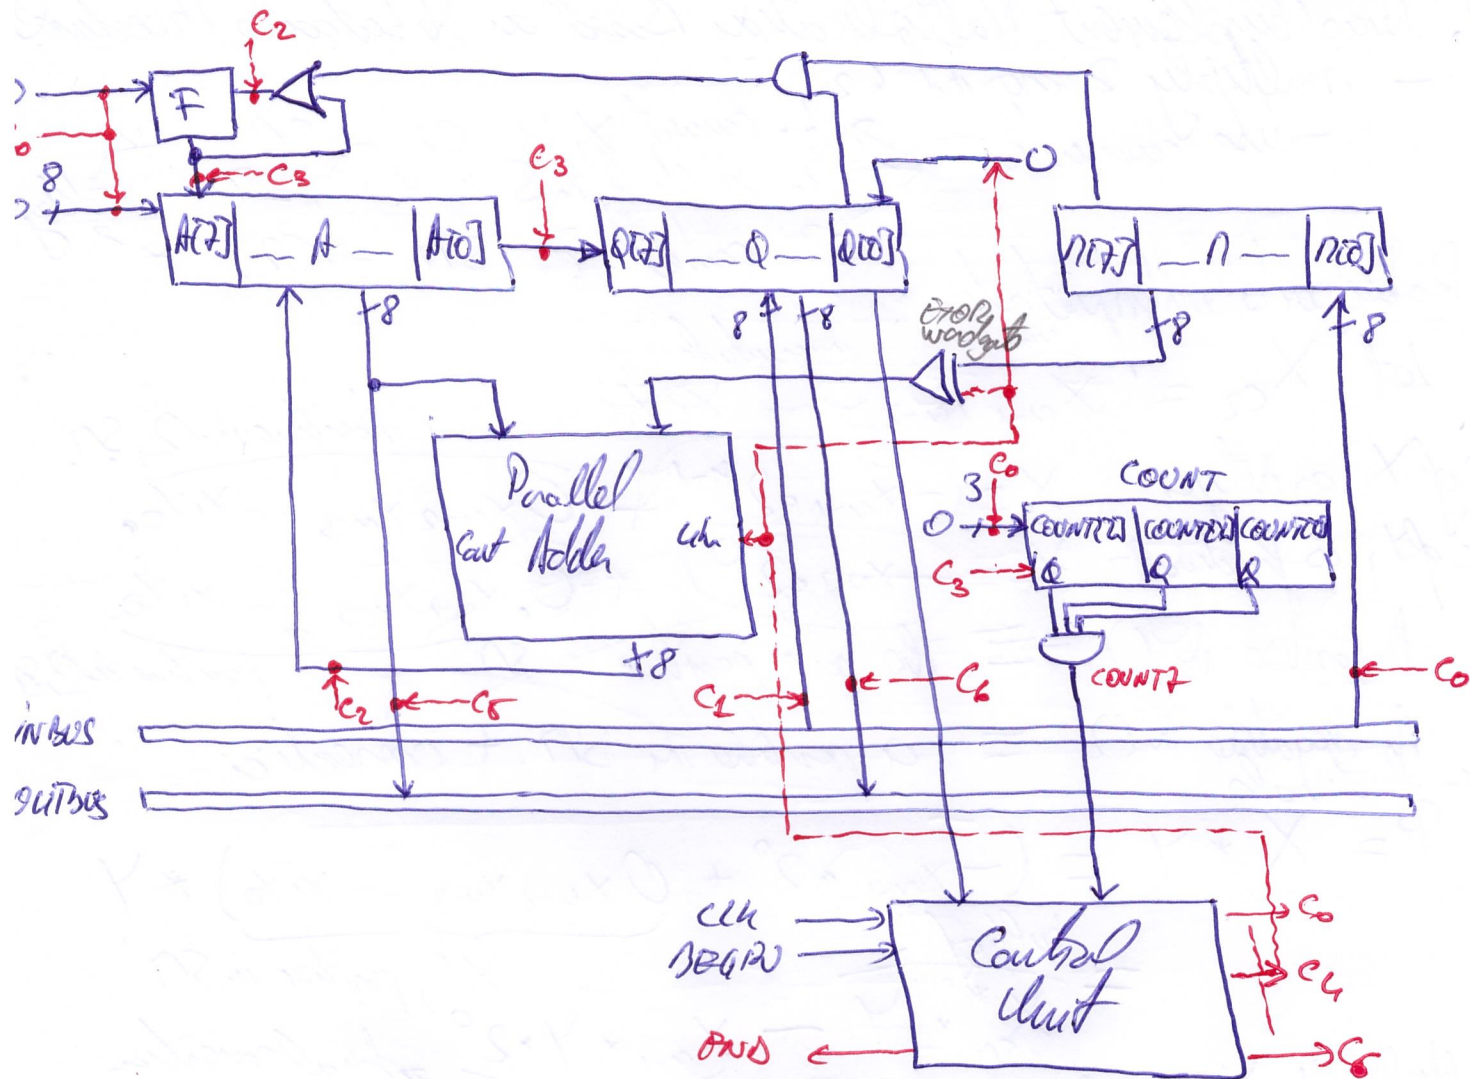 C2
F
8
C3
C3
0
A[7] _ A _ A[0]
Q[7] _ Q _ Q[0]
M[7] _ M _ M[0]
8
8
8
8
8
EXOR
wordgate
Parallel
Adder
Cout
Cin
3
C0
COUNT
0
COUNT[2] COUNT[1] COUNT[0]
C3
Q Q Q
8
COUNT7
C0
C2
C5
C1
C6
INBUS
OUTBUS
CLK
BEGIN
END
Control
Unit
C0
C4